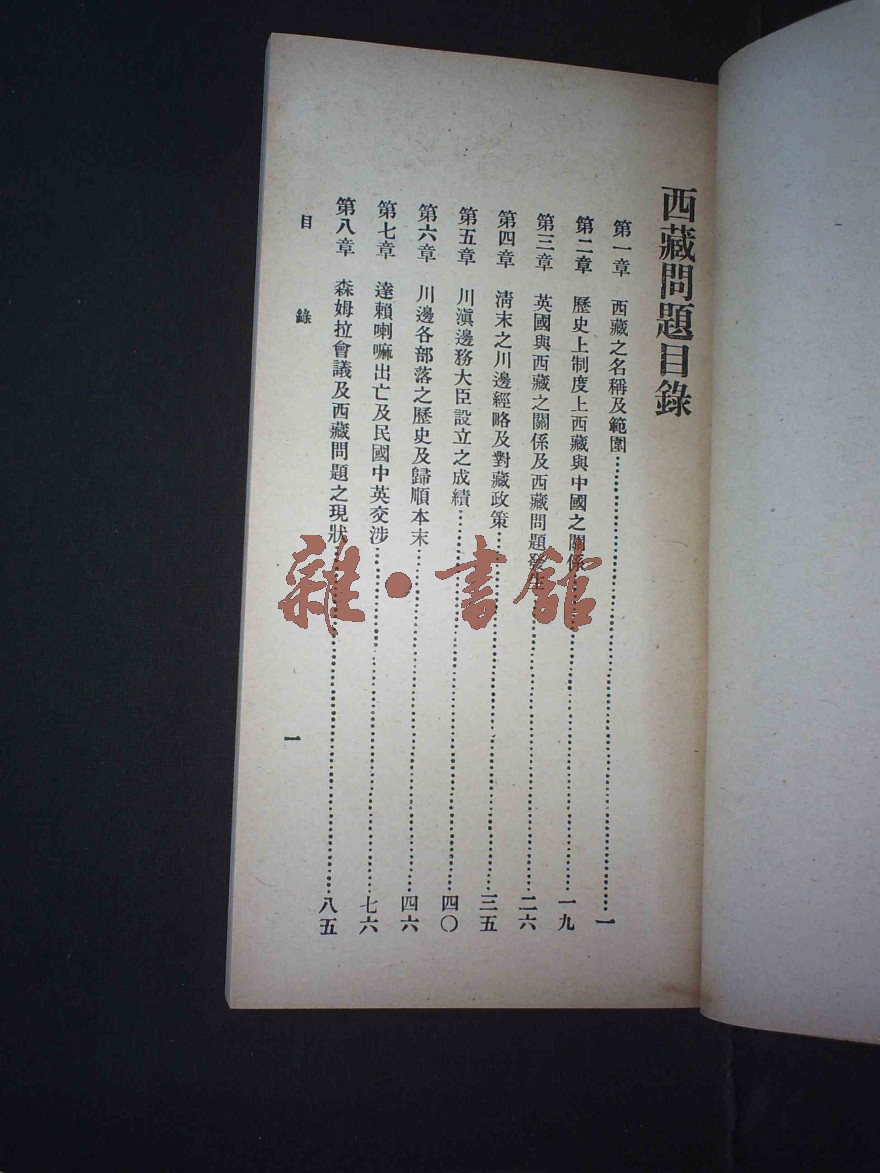 西藏問題目錄
第一章 西藏之名稱及範圍…………一
第二章 歷史上制度上西藏與中國之關係…………一九
第三章 英國與西藏之關係及西藏問題發生…………二六
第四章 淸末之川邊經略及對藏政策…………三五
第五章 川滇邊務大臣設立之成績…………四〇
第六章 川邊各部落之歷史及歸順本末…………四六
第七章 達賴喇嘛出亡及民國中英交涉…………七六
第八章 森姆拉會議及西藏問題之現狀…………八五
目錄 一
雜·書館